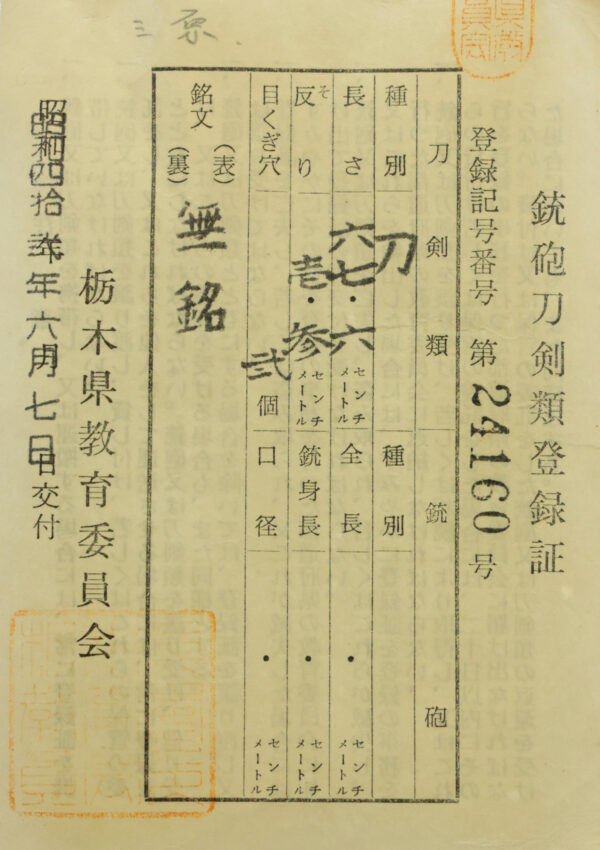 三原
銃砲刀剣類登録証
登録記号番号 第 24160 号
刀剣類
種別 刀
長さ 六七・六 センチメートル
反り そ 壱・参 センチメートル
目くぎ穴 弐 個
銘文 (表) (裏) 無銘
銃砲
種別
全長 ・ センチメートル
銃身長 ・ センチメートル
口径 ・ センチメートル
栃木県教育委員会
昭和四拾年六月七日交付